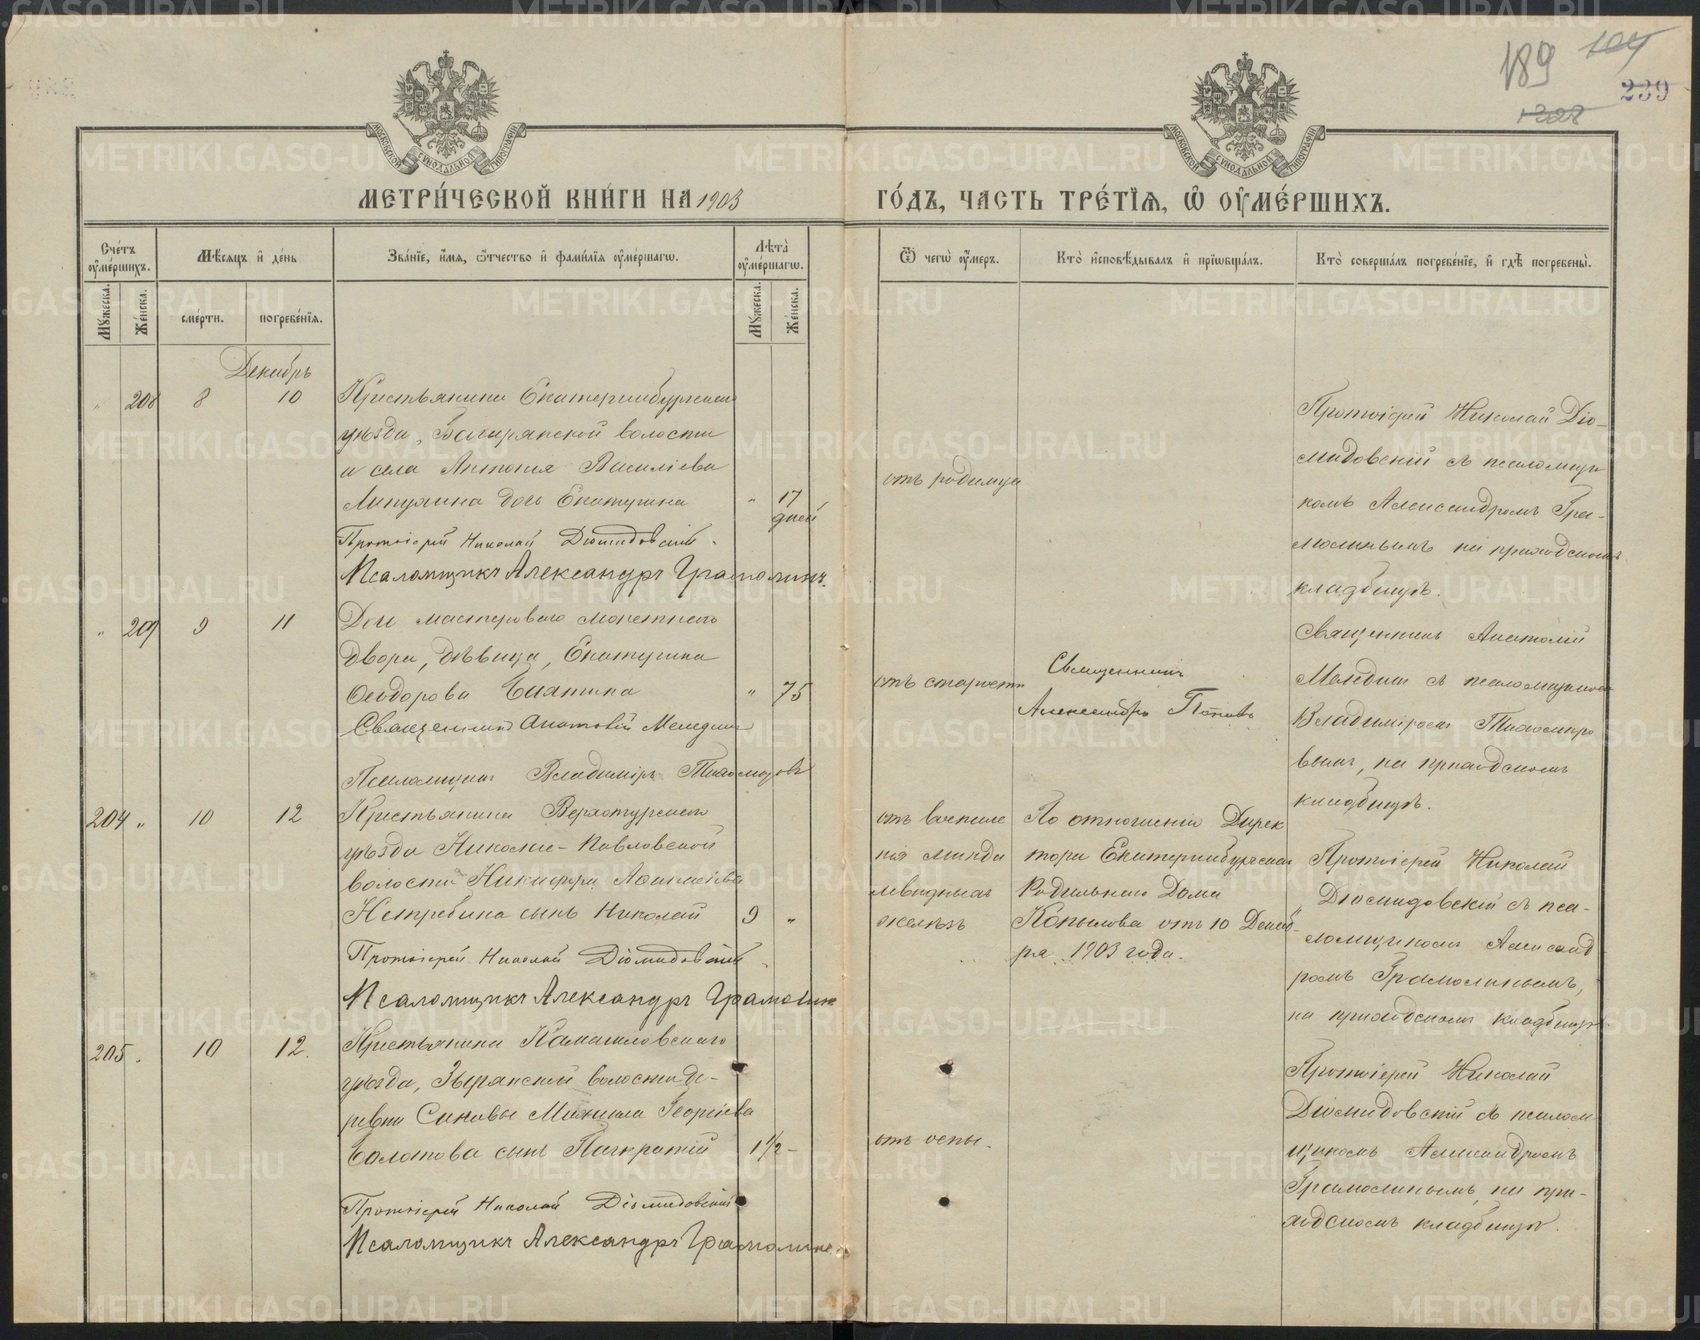 189 104
239
METRIKI.GASO-URAL.RU
МОСКОВСКОЙ СѴНОДАЛЬНОЙ ТИПОГРАФІИ
МЕТРИ́ЧЕСКОЙ КНИ́ГИ НА 1903
ГО́ДЪ, ЧАСТЬ ТРЕ́ТЇѦ, Ѡ҆ ОУ҆МЕ́РШИХЪ.
Сче́тъ оу҆ме́ршихъ.
Мѣ́сѧцъ и҆ де́нь
Зва́нїе, и҆́мѧ, ѻ҆́тчество и҆ фами́лїѧ оу҆ме́ршагѡ.
Лѣ́та оу҆ме́ршагѡ.
Ѿ чегѡ̀ оу҆́меръ.
Кто̀ и҆сповѣ́дывалъ и҆ прїѡбща́лъ.
Кто̀ соверша́лъ погребе́нїе, и҆ гдѣ̀ погребены̀.
Мꙋ́жеска. Же́нска. сме́рти. погребе́нїѧ. Мꙋ́жеска. Же́нска.
Декабрь
" 208 8 10
Крестьянина Екатеринбургскаго
уѣзда, Багарякской волости
и села Антонія Василіева
дочь Екатерина
" 17
дней
Протоіерей Николай Діомидовскій.
Псаломщикъ Александръ Грамолинъ.
отъ родимца
Протоіерей Николай Діо-
мидовскій съ псаломщи-
комъ Александромъ Гра-
молинымъ на приходскомъ
кладбищѣ.
" 209 9 11
Дочь мастероваго монетнаго
двора, дѣвица, Екатерина
Ѳеодорова
" 75
Священникъ Анатолій
Псаломщикъ Владиміръ Тихомировъ
отъ старости
Священникъ
Александръ Поповъ
Священникъ Анатолій
съ псаломщикомъ
Владиміромъ Тихомиро
вымъ, на приходскомъ
кладбищѣ.
204 " 10 12
Крестьянина Верхотурскаго
уѣзда Николае-Павловской
волости Никифора
Нетребина сынъ Николай
9 "
Протоіерей Николай Діомидовскій
Псаломщикъ Александръ Грамолинъ
отъ воспале
нія
левидныхъ
железъ
По отношенію Дирек
тора Екатеринбургскаго
Родильнаго Дома
Копылова отъ 10 Декаб-
ря 1903 года.
Протоіерей Николай
Діомидовскій съ пса-
ломщикомъ Александ
ромъ Грамолинымъ,
на приходскомъ кладбищѣ
205 . 10 12.
Крестьянина Камышловскаго
уѣзда, Зырянской волости де-
ревни Михаила Георгіева
Болотова сынъ Панкратій
1 1/2 -
Протоіерей Николай Діомидовскій
Псаломщикъ Александръ Грамолинъ
отъ оспы.
Протоіерей Николай
Діомидовскій съ псалом
щикомъ Александромъ
Грамолинымъ, на при-
ходскомъ кладбищѣ.